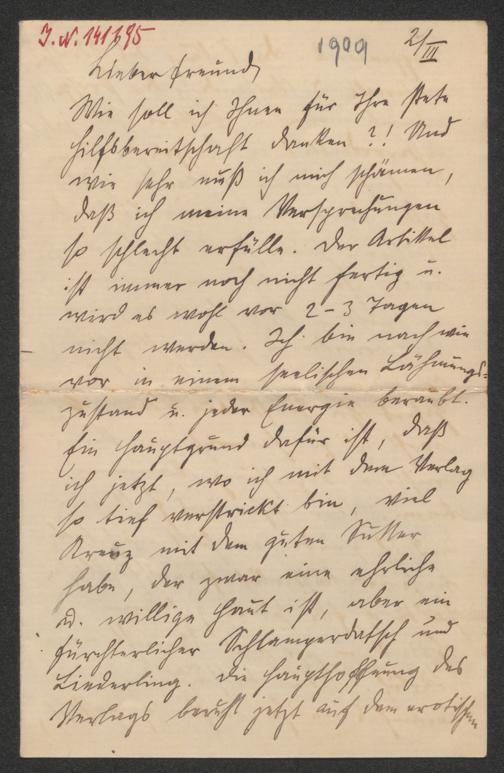 J. N. 141695
1909
2/III
Lieber Freund,
Wie soll ich Ihnen für Ihre stete
Hilfsbereitschaft danken?! Und
wie sehr muß ich mich schämen,
daß ich meine Versprechungen
so schlecht erfülle. Der Artikel
ist immer noch nicht fertig u.
wird es wohl vor 2-3 Tagen
nicht werden. Ich bin nach wie
vor in einem seelischen Lähmungs-
zustand u. jeder Energie beraubt.
Ein Hauptgrund dafür ist, daß
ich jetzt, wo ich mit dem Verlag
so tief verstrickt bin, viel
Kreuz mit dem guten
habe, der zwar eine ehrliche
u. willige Haut ist, aber ein
fürchterlicher Schlamperdatsch und
Liederling. Die Haupthoffnung des
Verlags beruht jetzt auf dem erotischen